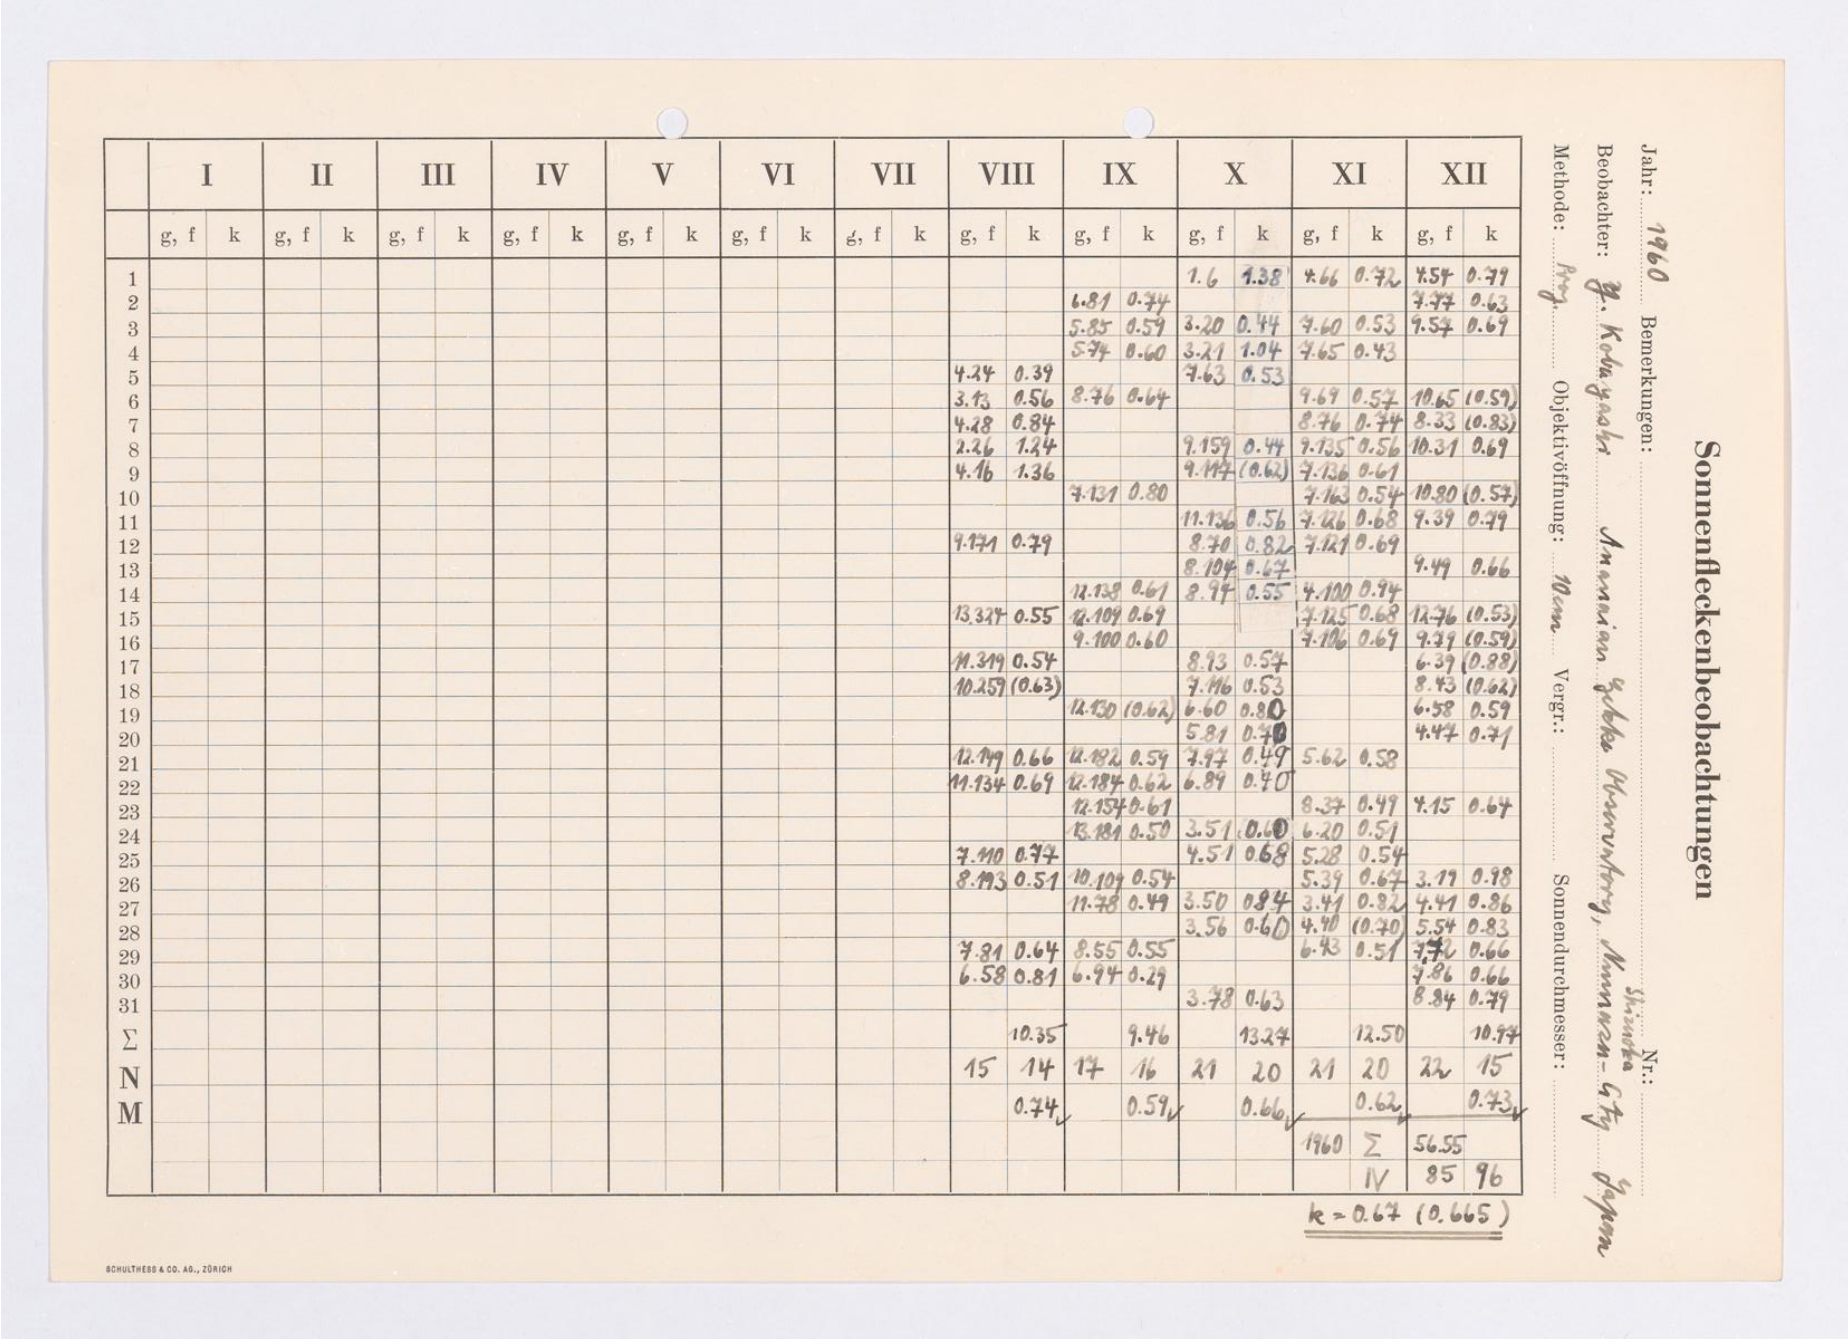 Sonnenfleckenbeobachtungen
Jahr: 1960 Bemerkungen: Nr.:
Beobachter: Y. Kobayashi Observatory, Numazu-City Shizuoka Japan
Methode: Proj. Objektivöffnung: 10cm Vergr.: Sonnendurchmesser:
I II III IV V VI VII VIII IX X XI XII
g, f k g, f k g, f k g, f k g, f k g, f k g, f k g, f k g, f k g, f k g, f k g, f k
1 1.6 1.38 4.66 0.72 4.54 0.79
2 6.81 0.74 7.77 0.63
3 5.85 0.59 3.20 0.44 7.60 0.53 9.57 0.69
4 5.74 0.60 3.21 1.04 7.65 0.43
5 4.24 0.39 7.63 0.53
6 3.13 0.56 8.76 0.64 9.69 0.57 10.65 (0.59)
7 4.28 0.84 8.76 0.74 8.33 (0.83)
8 2.26 1.24 9.159 0.44 9.135 0.56 10.31 0.69
9 4.16 1.36 9.117 (0.62) 7.136 0.61
10 7.131 0.80 7.163 0.54 10.80 (0.57)
11 11.136 0.56 7.126 0.68 9.39 0.79
12 9.171 0.79 8.70 0.82 7.121 0.69
13 8.104 0.67 9.49 0.66
14 12.138 0.61 8.97 0.55 4.100 0.94
15 13.324 0.55 12.109 0.69 7.125 0.68 12.76 (0.53)
16 9.100 0.60 7.106 0.69 9.79 (0.59)
17 11.319 0.54 8.93 0.57 6.39 (0.88)
18 10.259 (0.63) 7.116 0.53 8.43 (0.62)
19 12.130 (0.62) 6.60 0.80 6.58 0.59
20 5.81 0.70 4.47 0.71
21 12.149 0.66 12.182 0.59 7.97 0.49 5.62 0.58
22 11.134 0.69 12.184 0.62 6.89 0.40
23 12.154 0.61 8.37 0.49 4.15 0.64
24 13.181 0.50 3.51 0.60 6.20 0.51
25 7.110 0.77 4.51 0.68 5.28 0.54
26 8.193 0.51 10.109 0.54 5.39 0.67 3.19 0.98
27 11.78 0.49 3.50 0.84 3.41 0.82 4.41 0.86
28 3.56 0.60 4.40 (0.70) 5.54 0.83
29 7.81 0.64 8.55 0.55 6.43 0.51 7.72 0.66
30 6.58 0.81 6.94 0.29 7.86 0.66
31 3.78 0.63 8.84 0.79
Σ 10.35 9.46 13.27 12.50 10.97
N 15 14 17 16 21 20 21 20 22 15
M 0.74 0.59 0.66 0.62 0.73
1960 Σ 56.55
N 85 96
k = 0.67 (0.665)
SCHULTHESS & CO. AG., ZÜRICH